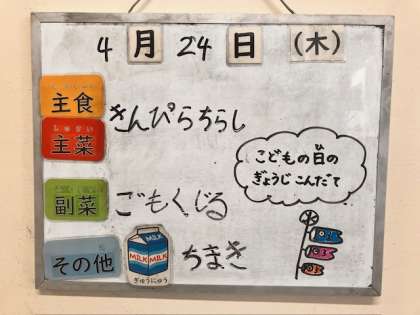 4月24日(木)
主食
きんぴらちらし
しゅさい
主菜
こどもの日のび
ぎょうじこんだて
副菜
ごもくじる
その他
MILK MILK
MILK MILK
ぎゅうにゅう
ちまき